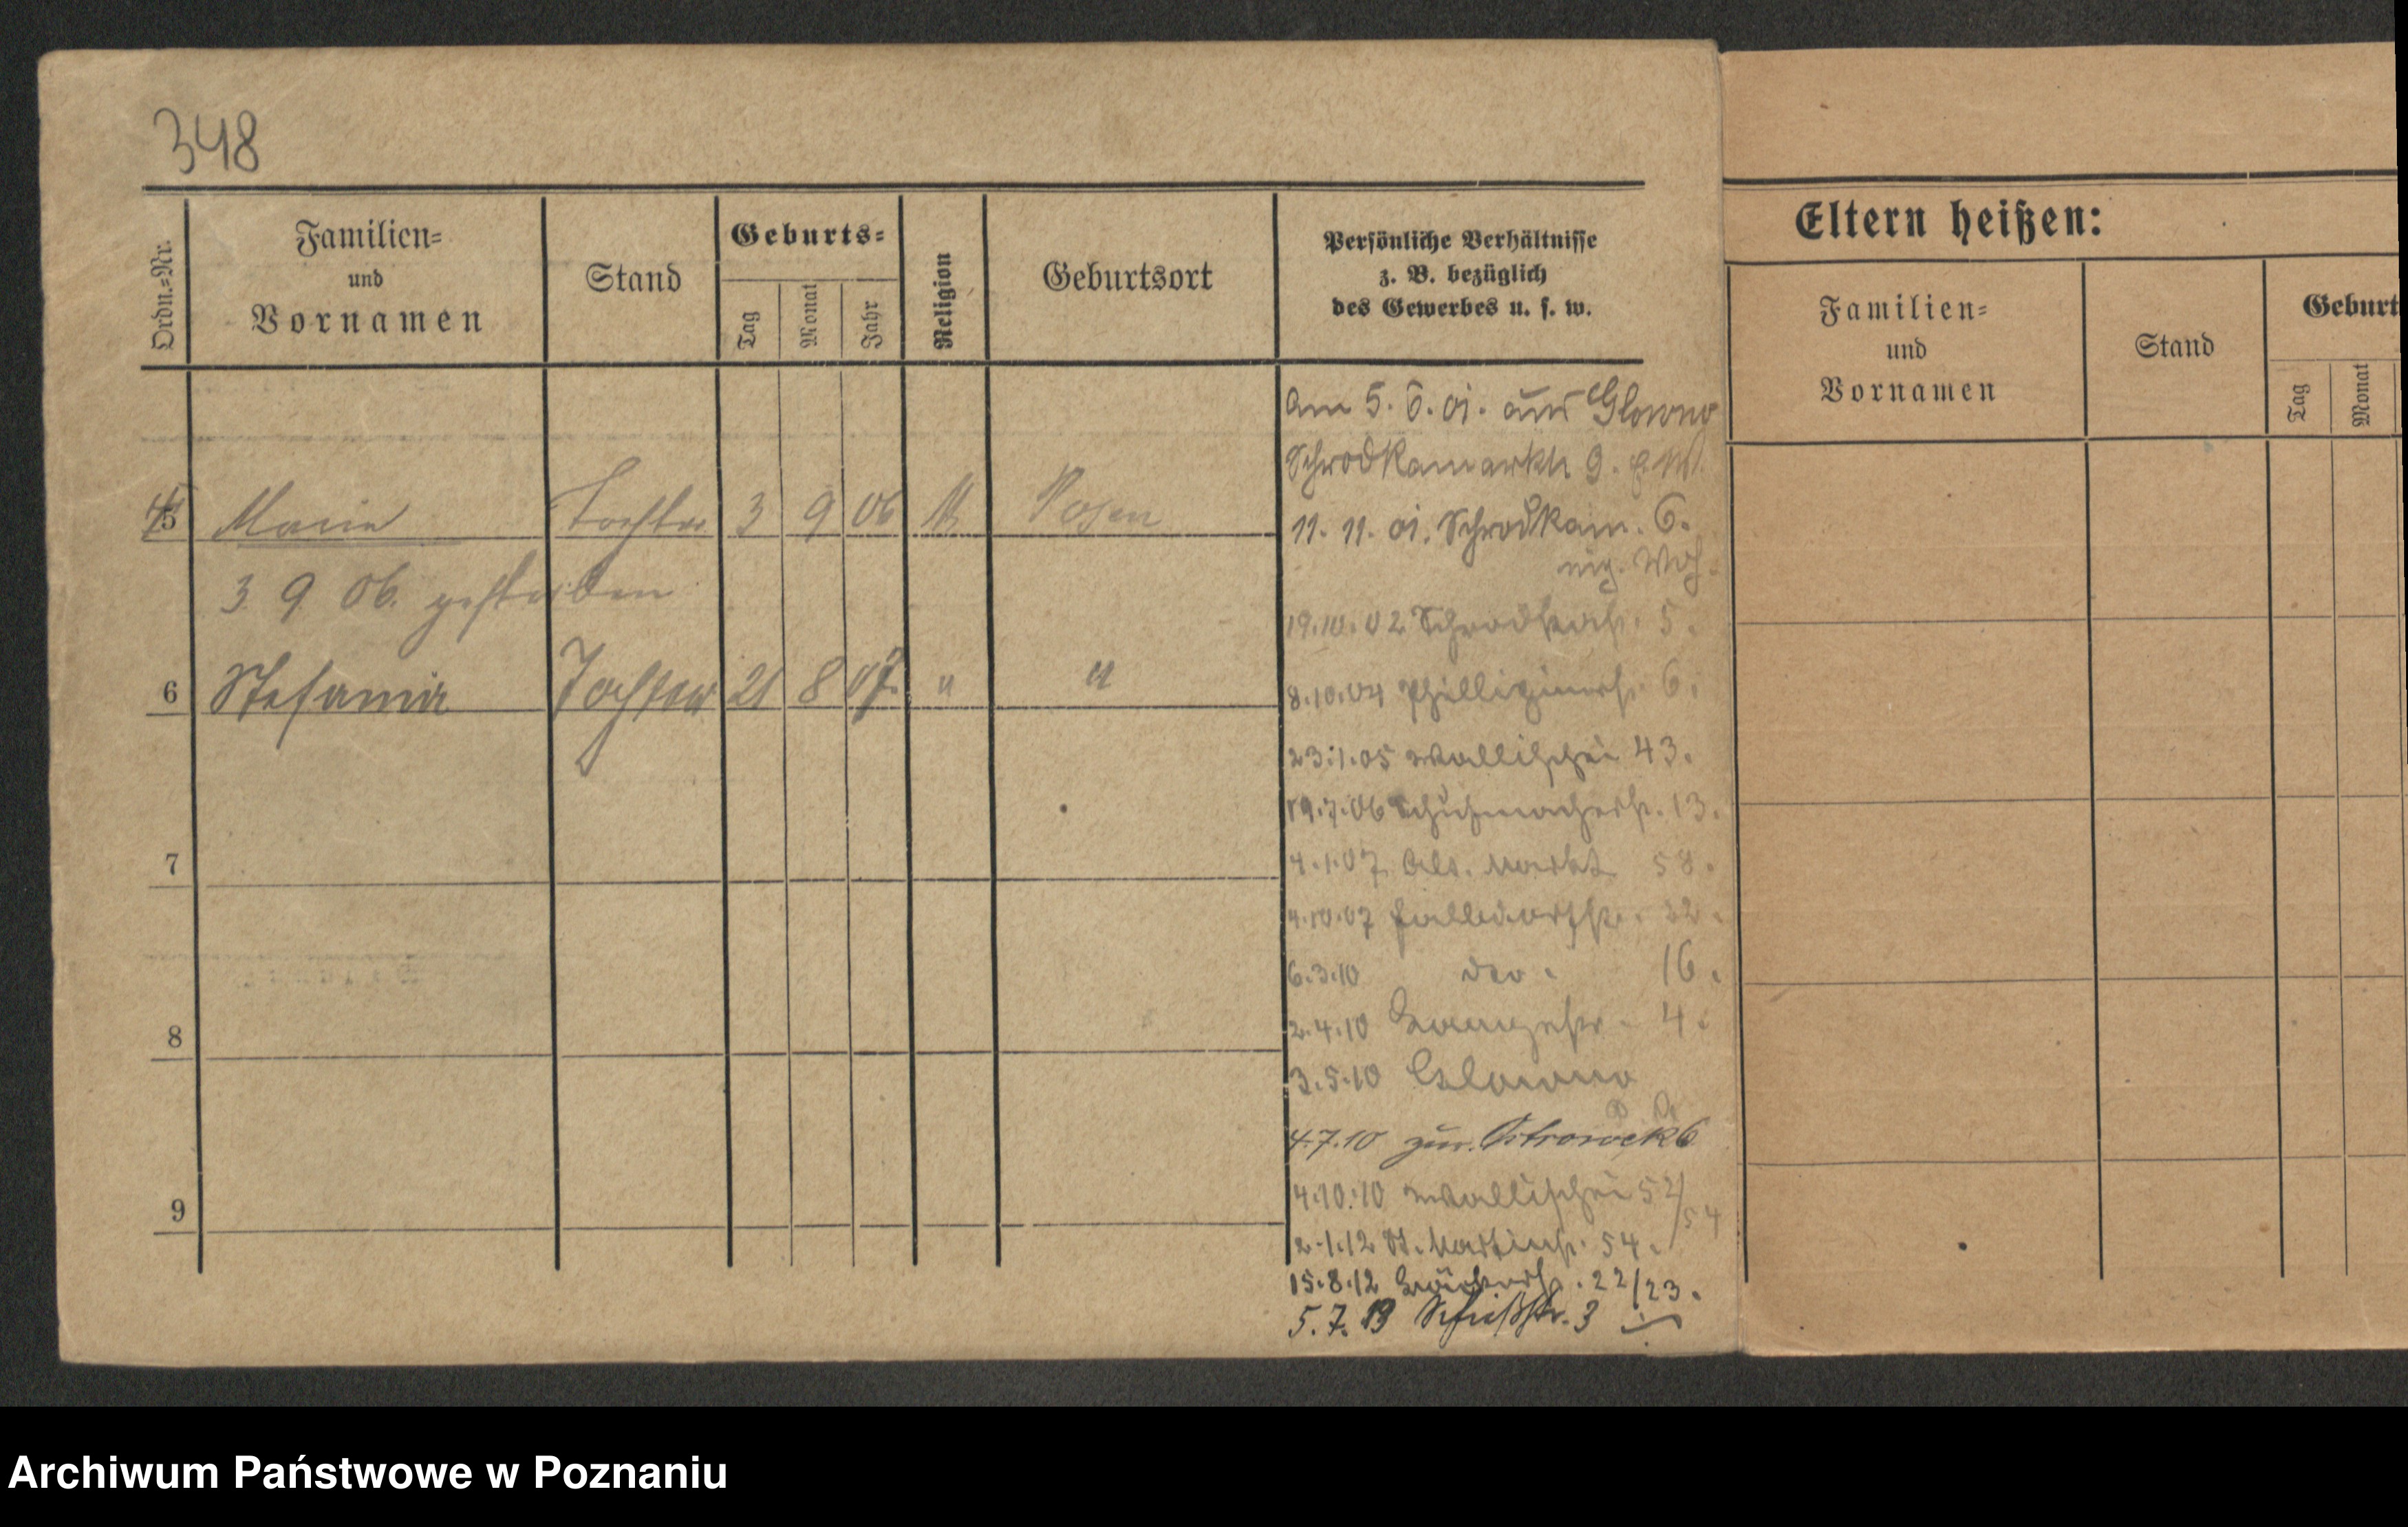 348
Ordn.-Nr.
Familien-
und
Vornamen
Stand
Geburts-
Tag
Monat
Jahr
Religion
Geburtsort
Persönliche Verhältnisse
z. B. bezüglich
des Gewerbes u. s. w.
Eltern heißen:
Familien-
und
Vornamen
Stand
Geburt
Tag
Monat
5 Marie Tochter 3 9 06 K Posen
3 9 06. gestorben
6 Stefania Tochter 21 8 07. " "
7
8
9
Am 5. 6. 01. aus Glowno
Schrodkamarkt 9.
11. 11. 01. Schrodkam. 6.
19.10.02 5.
8.10.04 6.
23.1.05 Wallischei 43.
19.7.06 Schuhmacherstr. 13.
4.1.07 Alt. Markt 58.
4.10.07 Halldorfstr. 32.
6.3.10 dto. 16.
2.4.10 4.
3.5.10 Glowno
4.7.10 zur. Ostrowek 6
4.10.10 Wallischei 52/54
2.1.12 St. Martinstr. 54.
15.8.12 22/23.
5.7.13 Schießstr. 3
Archiwum Państwowe w Poznaniu